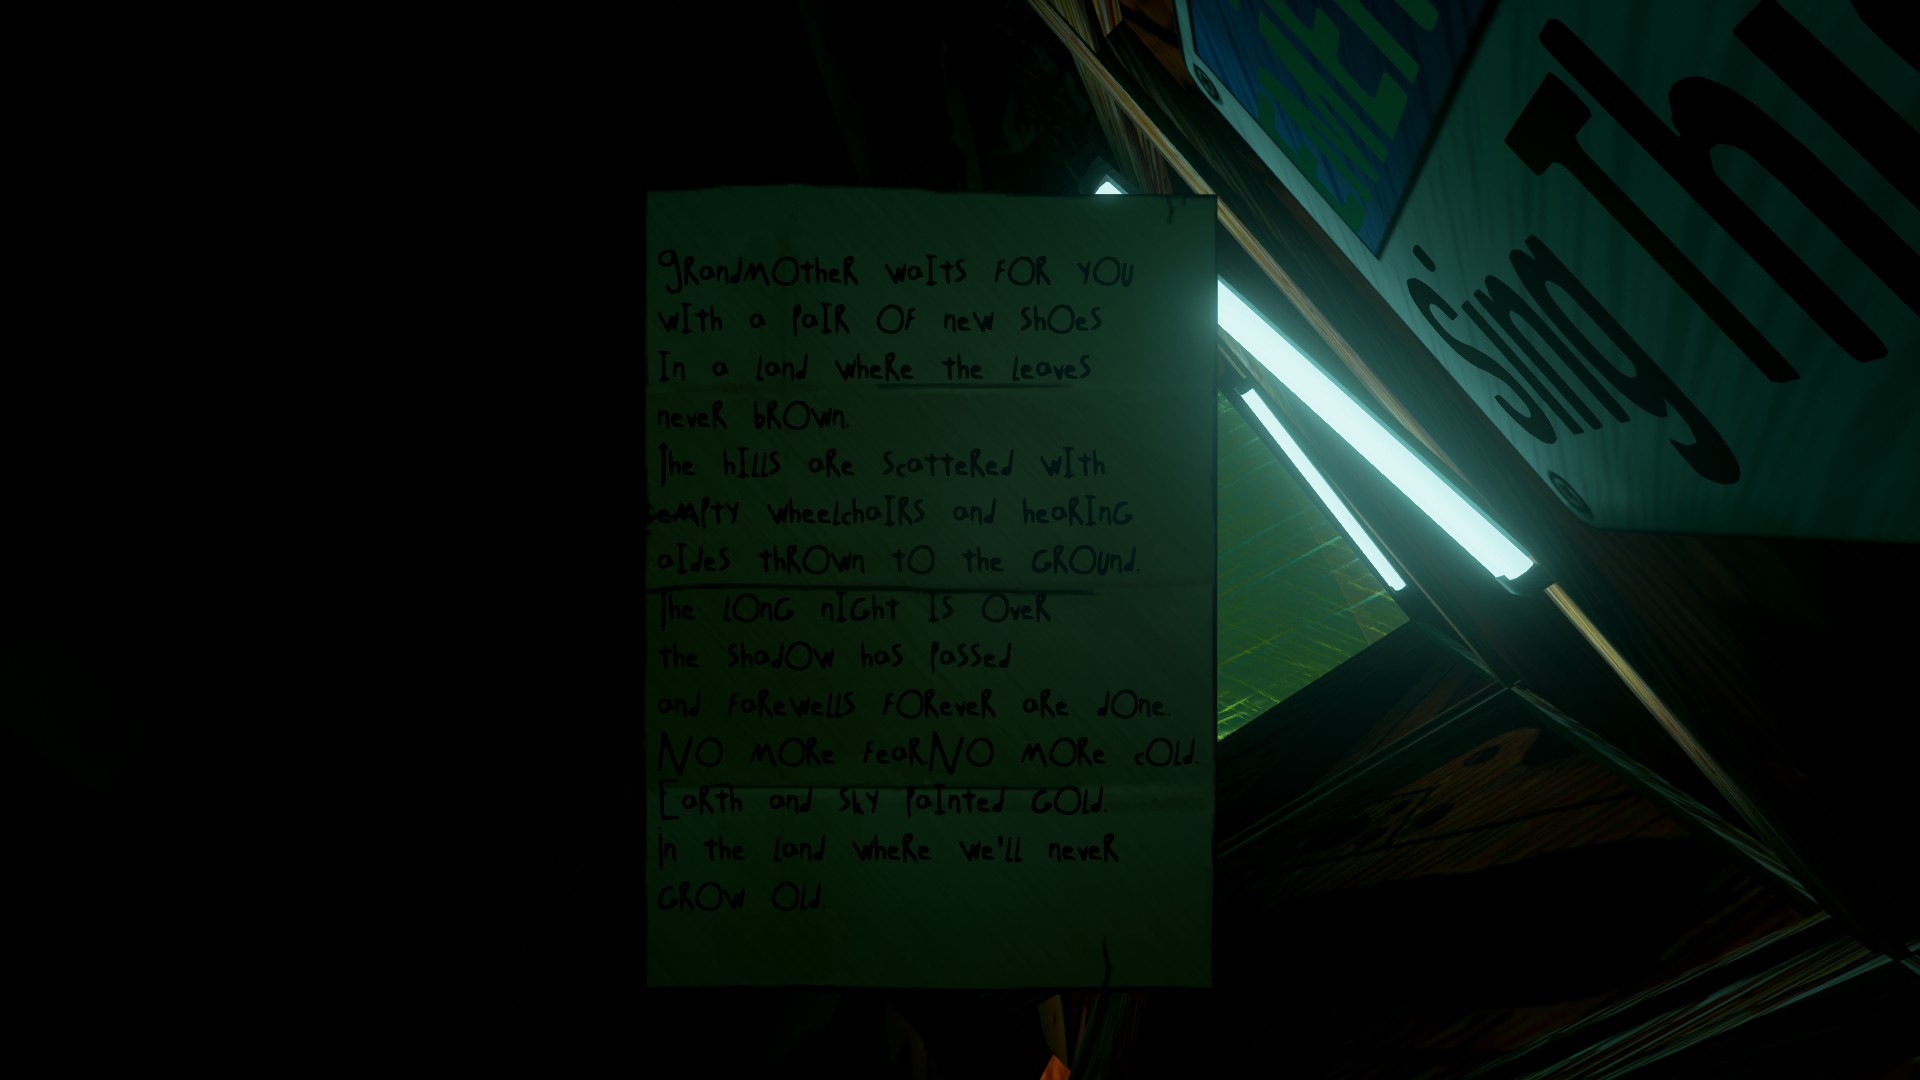 grandmother waits for you
with a pair of new shoes
In a land where the leaves
never brown.
The hills are scattered with
empty wheelchairs and hearing
aides thrown to the ground.
The long night is over
the shadow has passed
and farewells forever are done.
No more fear.No more cold.
Earth and sky painted gold.
in the land where we'll never
grow old.
sing